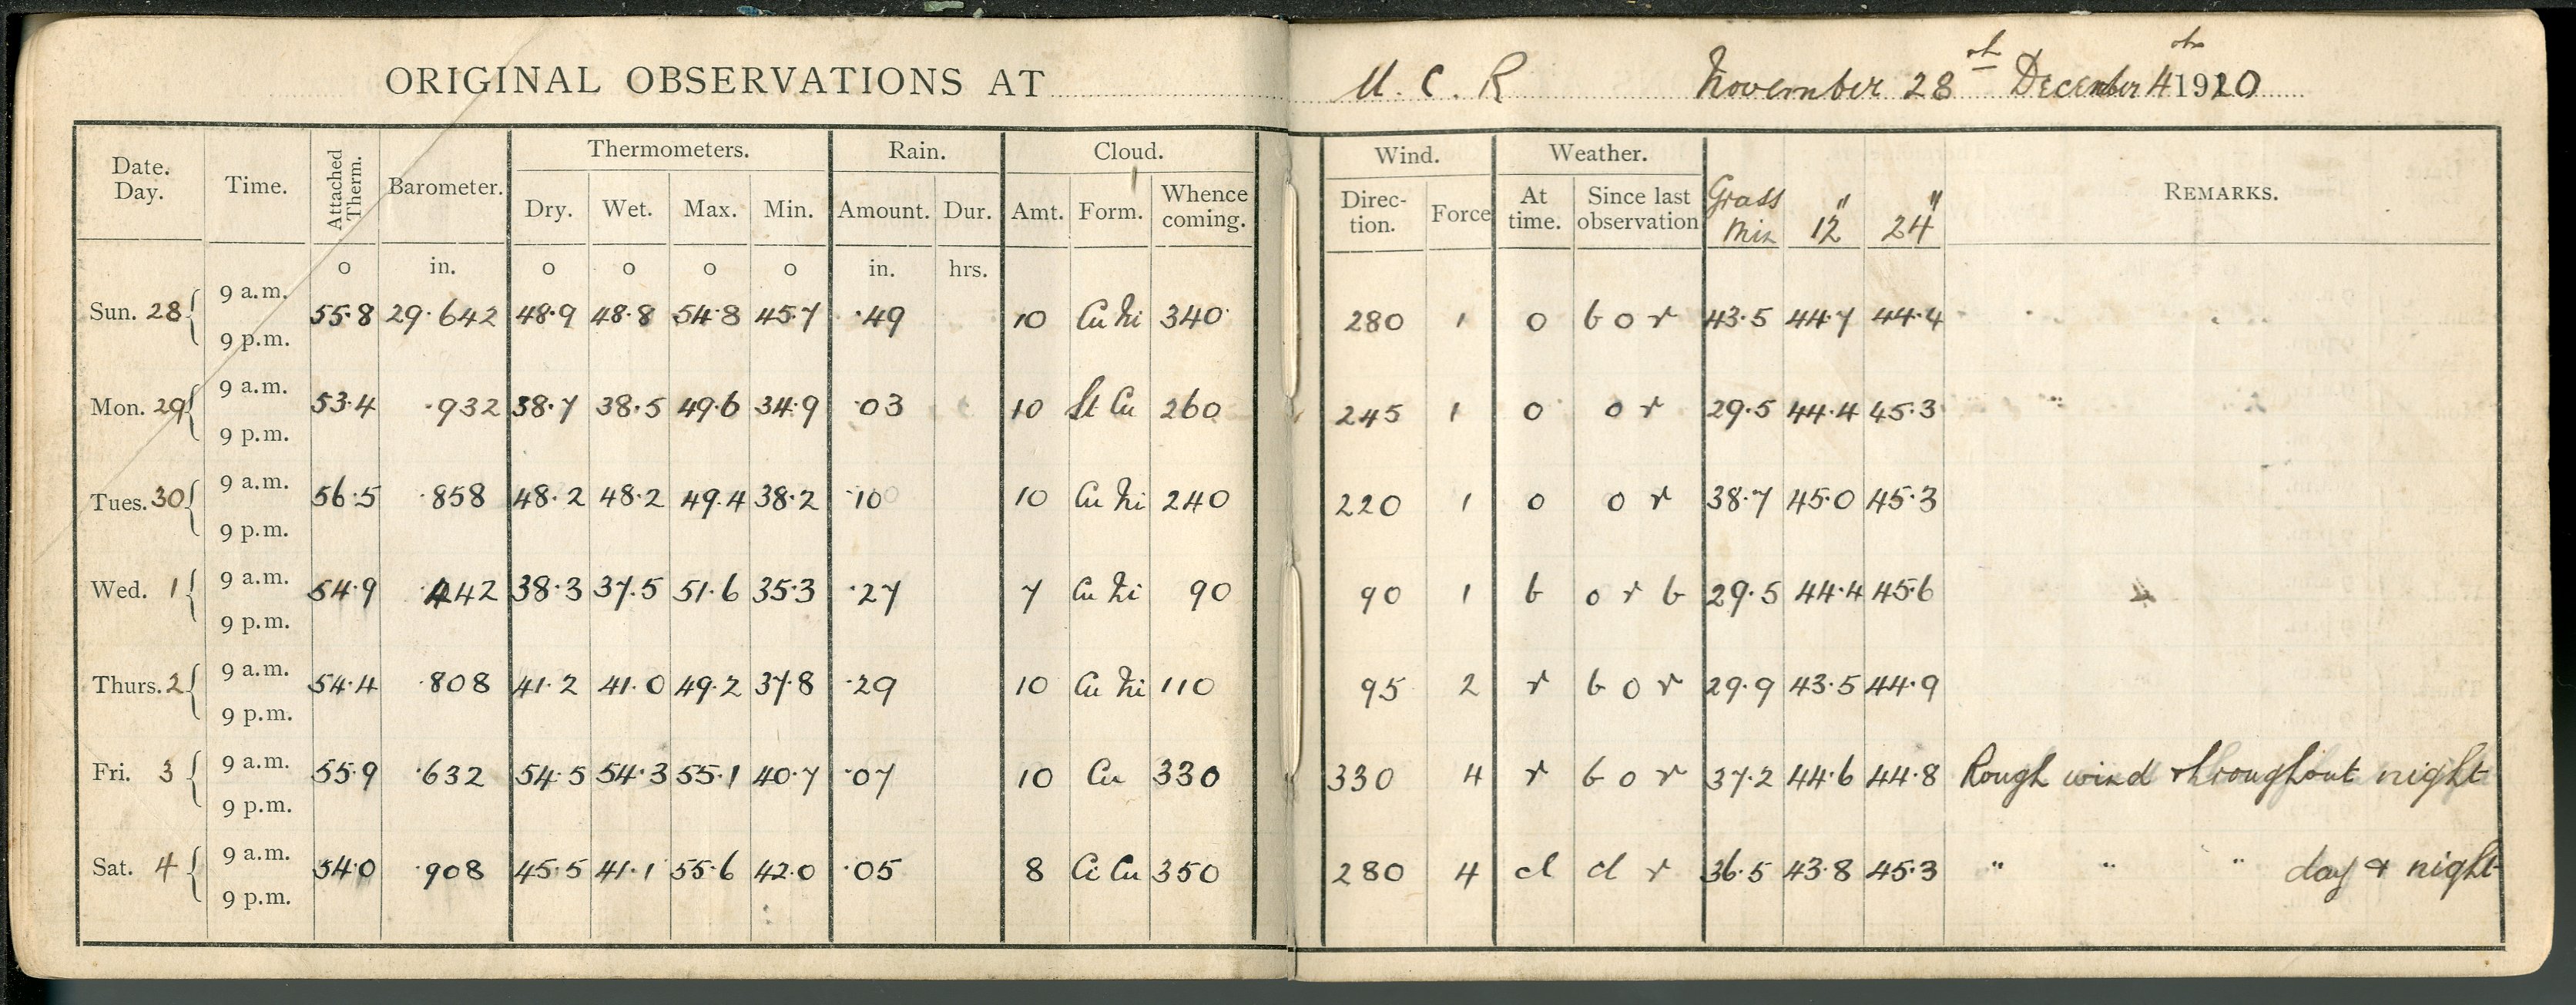 ORIGINAL OBSERVATIONS AT U. C. R November 28th December 4th 1920
Date. Day. Time. Attached Therm. Barometer. Thermometers. Rain. Cloud. Wind. Weather. REMARKS.
Dry. Wet. Max. Min. Amount. Dur. Amt. Form. Whence coming. Direc- tion. Force At time. Since last observation Grass Min 12" 24"
o in. o o o o in. hrs.
9 a.m.
Sun. 28 55.8 29.642 48.9 48.8 54.8 45.7 .49 10 Cu Ni 340 280 1 o b o r 43.5 44.7 44.4
9 p.m.
9 a.m.
Mon. 29 53.4 .932 38.7 38.5 49.6 34.9 .03 10 St Cu 260 245 1 o o r 29.5 44.4 45.3
9 p.m.
9 a.m.
Tues. 30 56.5 .858 48.2 48.2 49.4 38.2 .10 10 Cu Ni 240 220 1 o o r 38.7 45.0 45.3
9 p.m.
9 a.m.
Wed. 1 54.9 38.3 37.5 51.6 35.3 .27 7 Cu Ni 90 90 1 b o r b 29.5 44.4 45.6
9 p.m.
9 a.m.
Thurs. 2 54.4 .808 41.2 41.0 49.2 37.8 .29 10 Cu Ni 110 95 2 r b o r 29.9 43.5 44.9
9 p.m.
9 a.m.
Fri. 3 55.9 .632 54.5 54.3 55.1 40.7 .07 10 Cu 330 330 4 r b o r 37.2 44.6 44.8 Rough wind throughout night
9 p.m.
9 a.m.
Sat. 4 54.0 .908 45.5 41.1 55.6 42.0 .05 8 Ci Cu 350 280 4 cl cl r 36.5 43.8 45.3 " " " day & night
9 p.m.